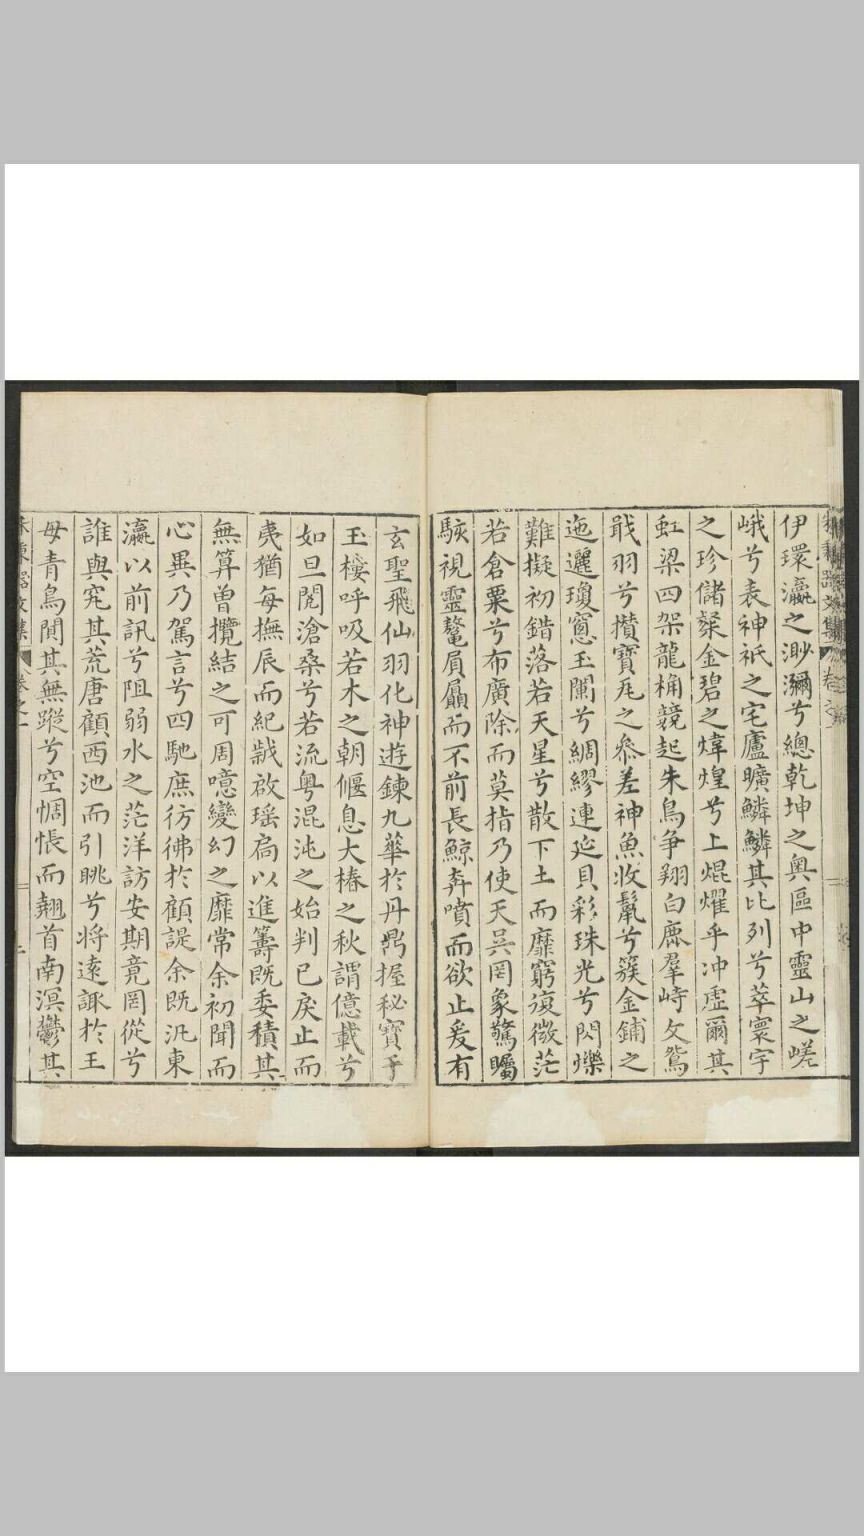 伊環瀛之渺瀰兮總乾坤之奧區中靈山之嵯
峨兮表神祇之宅廬曠鱗鱗其比列兮萃寰宇
之珍儲粲金碧之煒煌兮上焜燿乎沖虛爾其
虹梁四架龍桷競起朱鳥争翔白鹿羣峙文鴛
戢羽兮攅寶瓦之叅差神魚收鬣兮簇金鋪之
迤邐瓊窻玉闌兮綢繆連延貝彩珠光兮閃爍
難擬初錯落若天星兮散下土而靡窮復微茫
若倉粟兮布廣除而莫指乃使天吳罔象驚矚
駭視靈鼇屓贔而不前長鯨奔噴而欲止爰有
玄聖飛仙羽化神遊鍊九華於丹鼎握秘寶于
玉樓呼吸若木之朝偃息大椿之秋謂億載兮
如旦閱滄桑兮若流粤混沌之始判已戾止而
夷猶每撫辰而紀韱啟瑶扃以進籌既委積其
無算曽攬結之可周噫變幻之靡常余初聞而
心異乃駕言兮四馳庶彷彿於顧諟余既汎東
瀛以前訊兮阻弱水之茫洋訪安期竟罔從兮
誰與究其荒唐顧西池而引眺兮将遠諏於王
母青鳥閴其無蹤兮空惆悵而翹首南溟鬱其
朱東
文集
卷之一